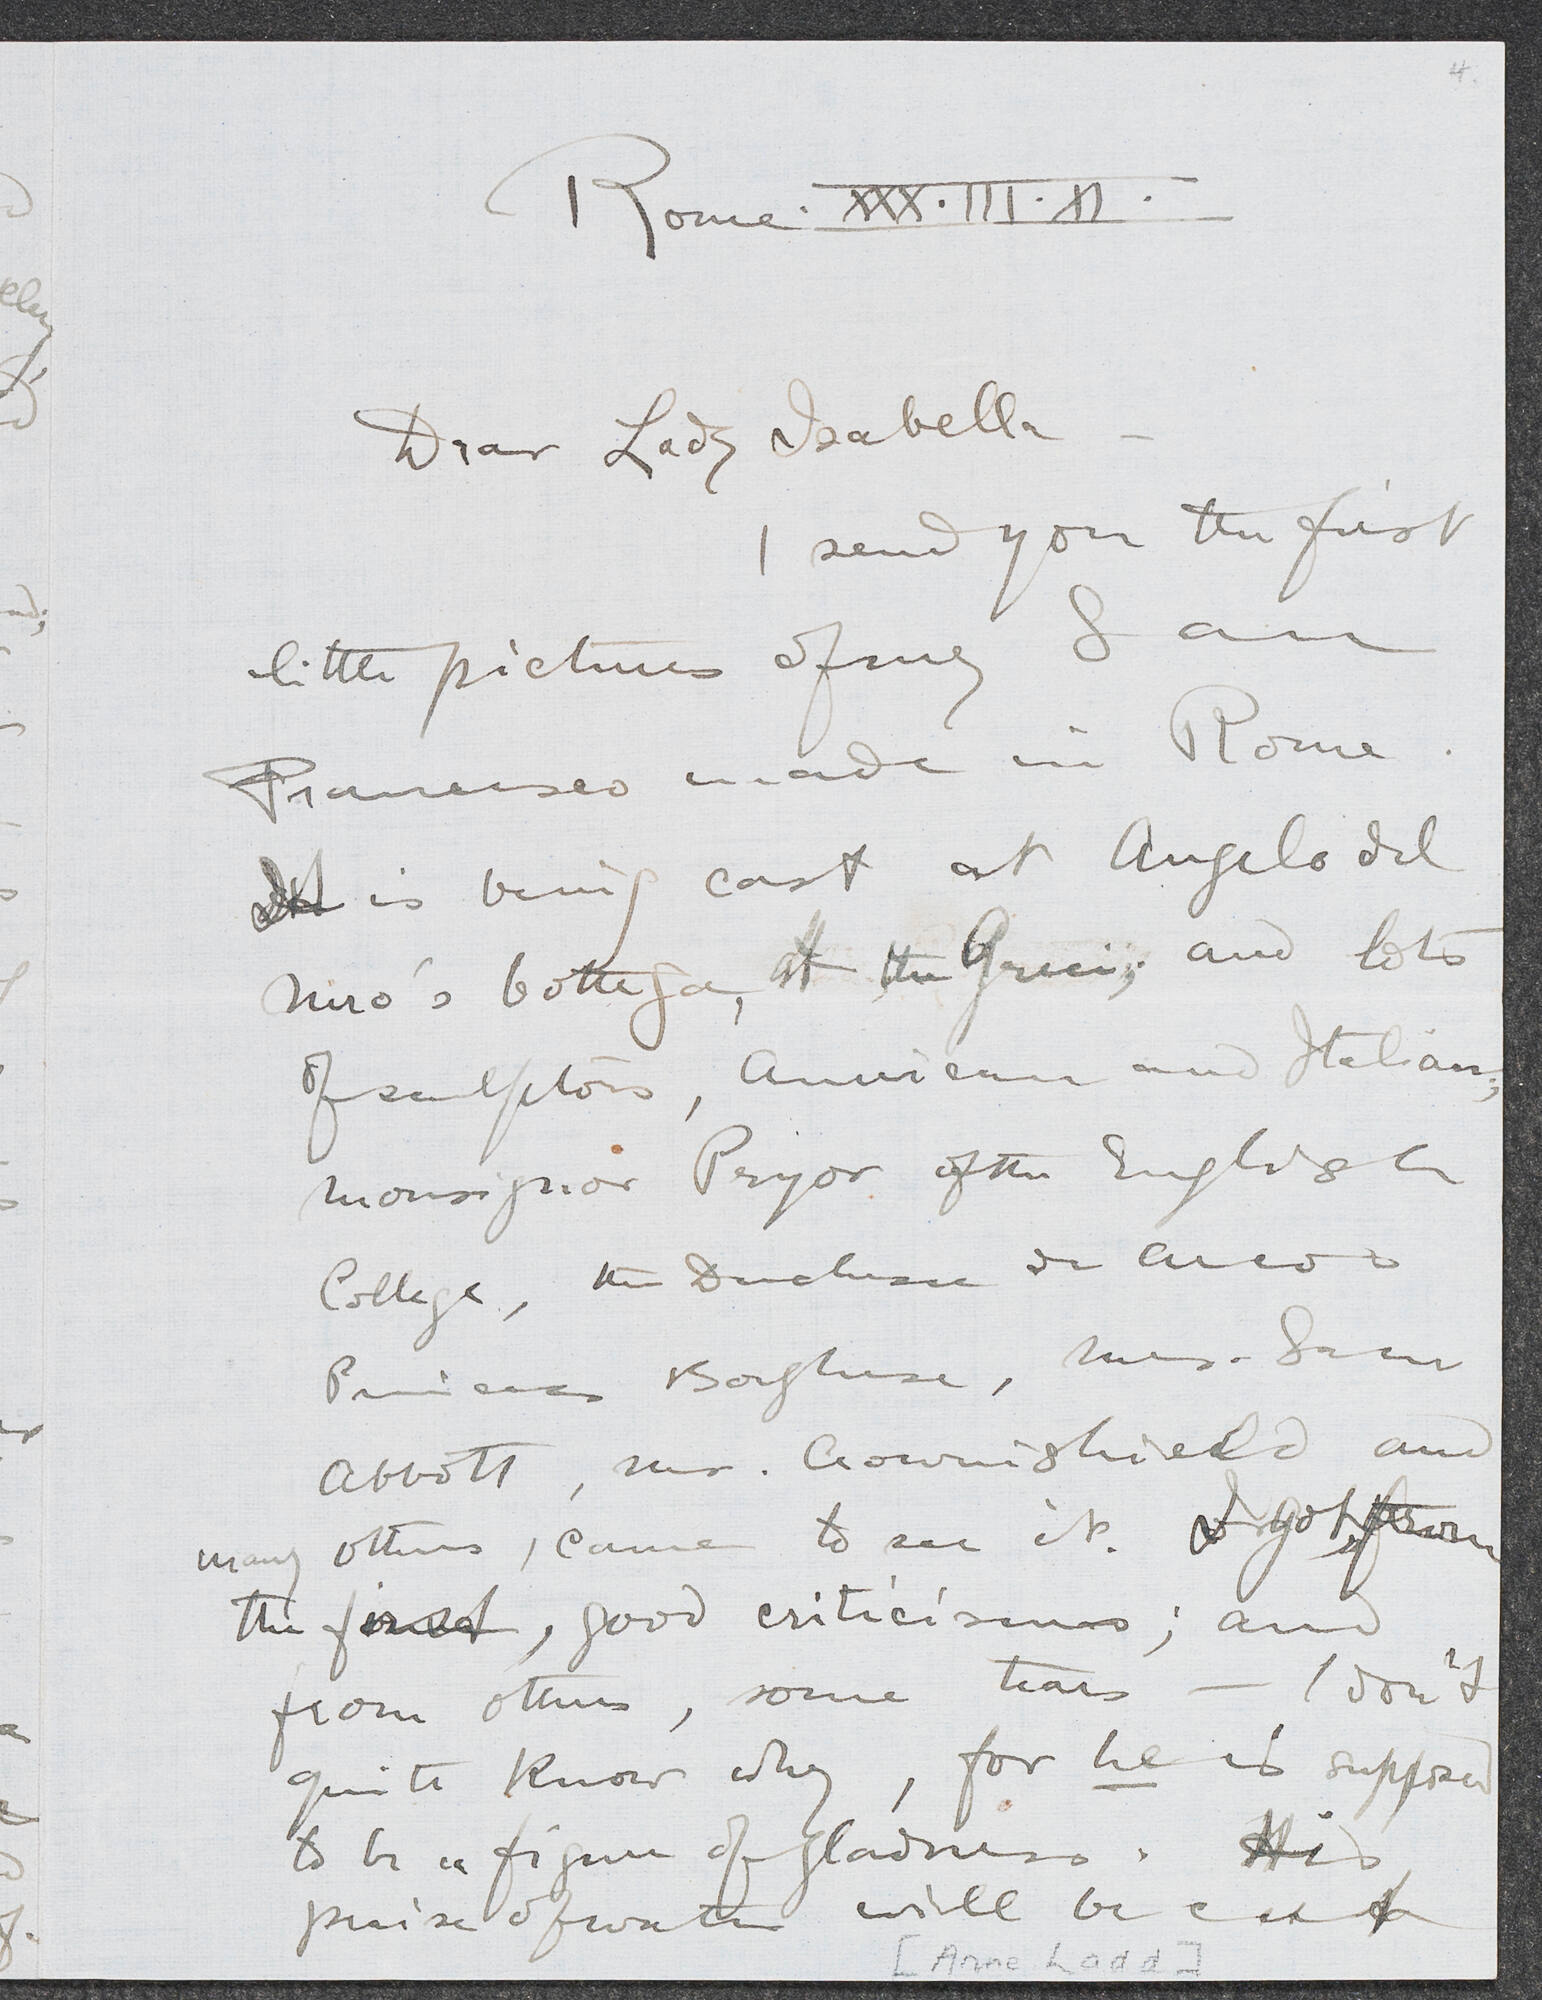 4.
Rome. XXX·III·XI·
Dear Lady Isabella —
I send you the first
little pictures of my San
Francesco made in Rome.
It is being cast at Angelo del
Nero's bottega, at the Greci; and lots
of sculptors, American and Italian,
Monsignor Pryor of the English
College, the Duchesse de Arcos
Princess Borghese, Mrs. Sam
Abbott, Mr. Crowninshield and
many others, came to see it. I got, from
the first, good criticisms; and
from others, some tears — I don't
quite know why, for he is supposed
to be a figure of gladness. His
praise of water will be cut
[Anne Ladd]